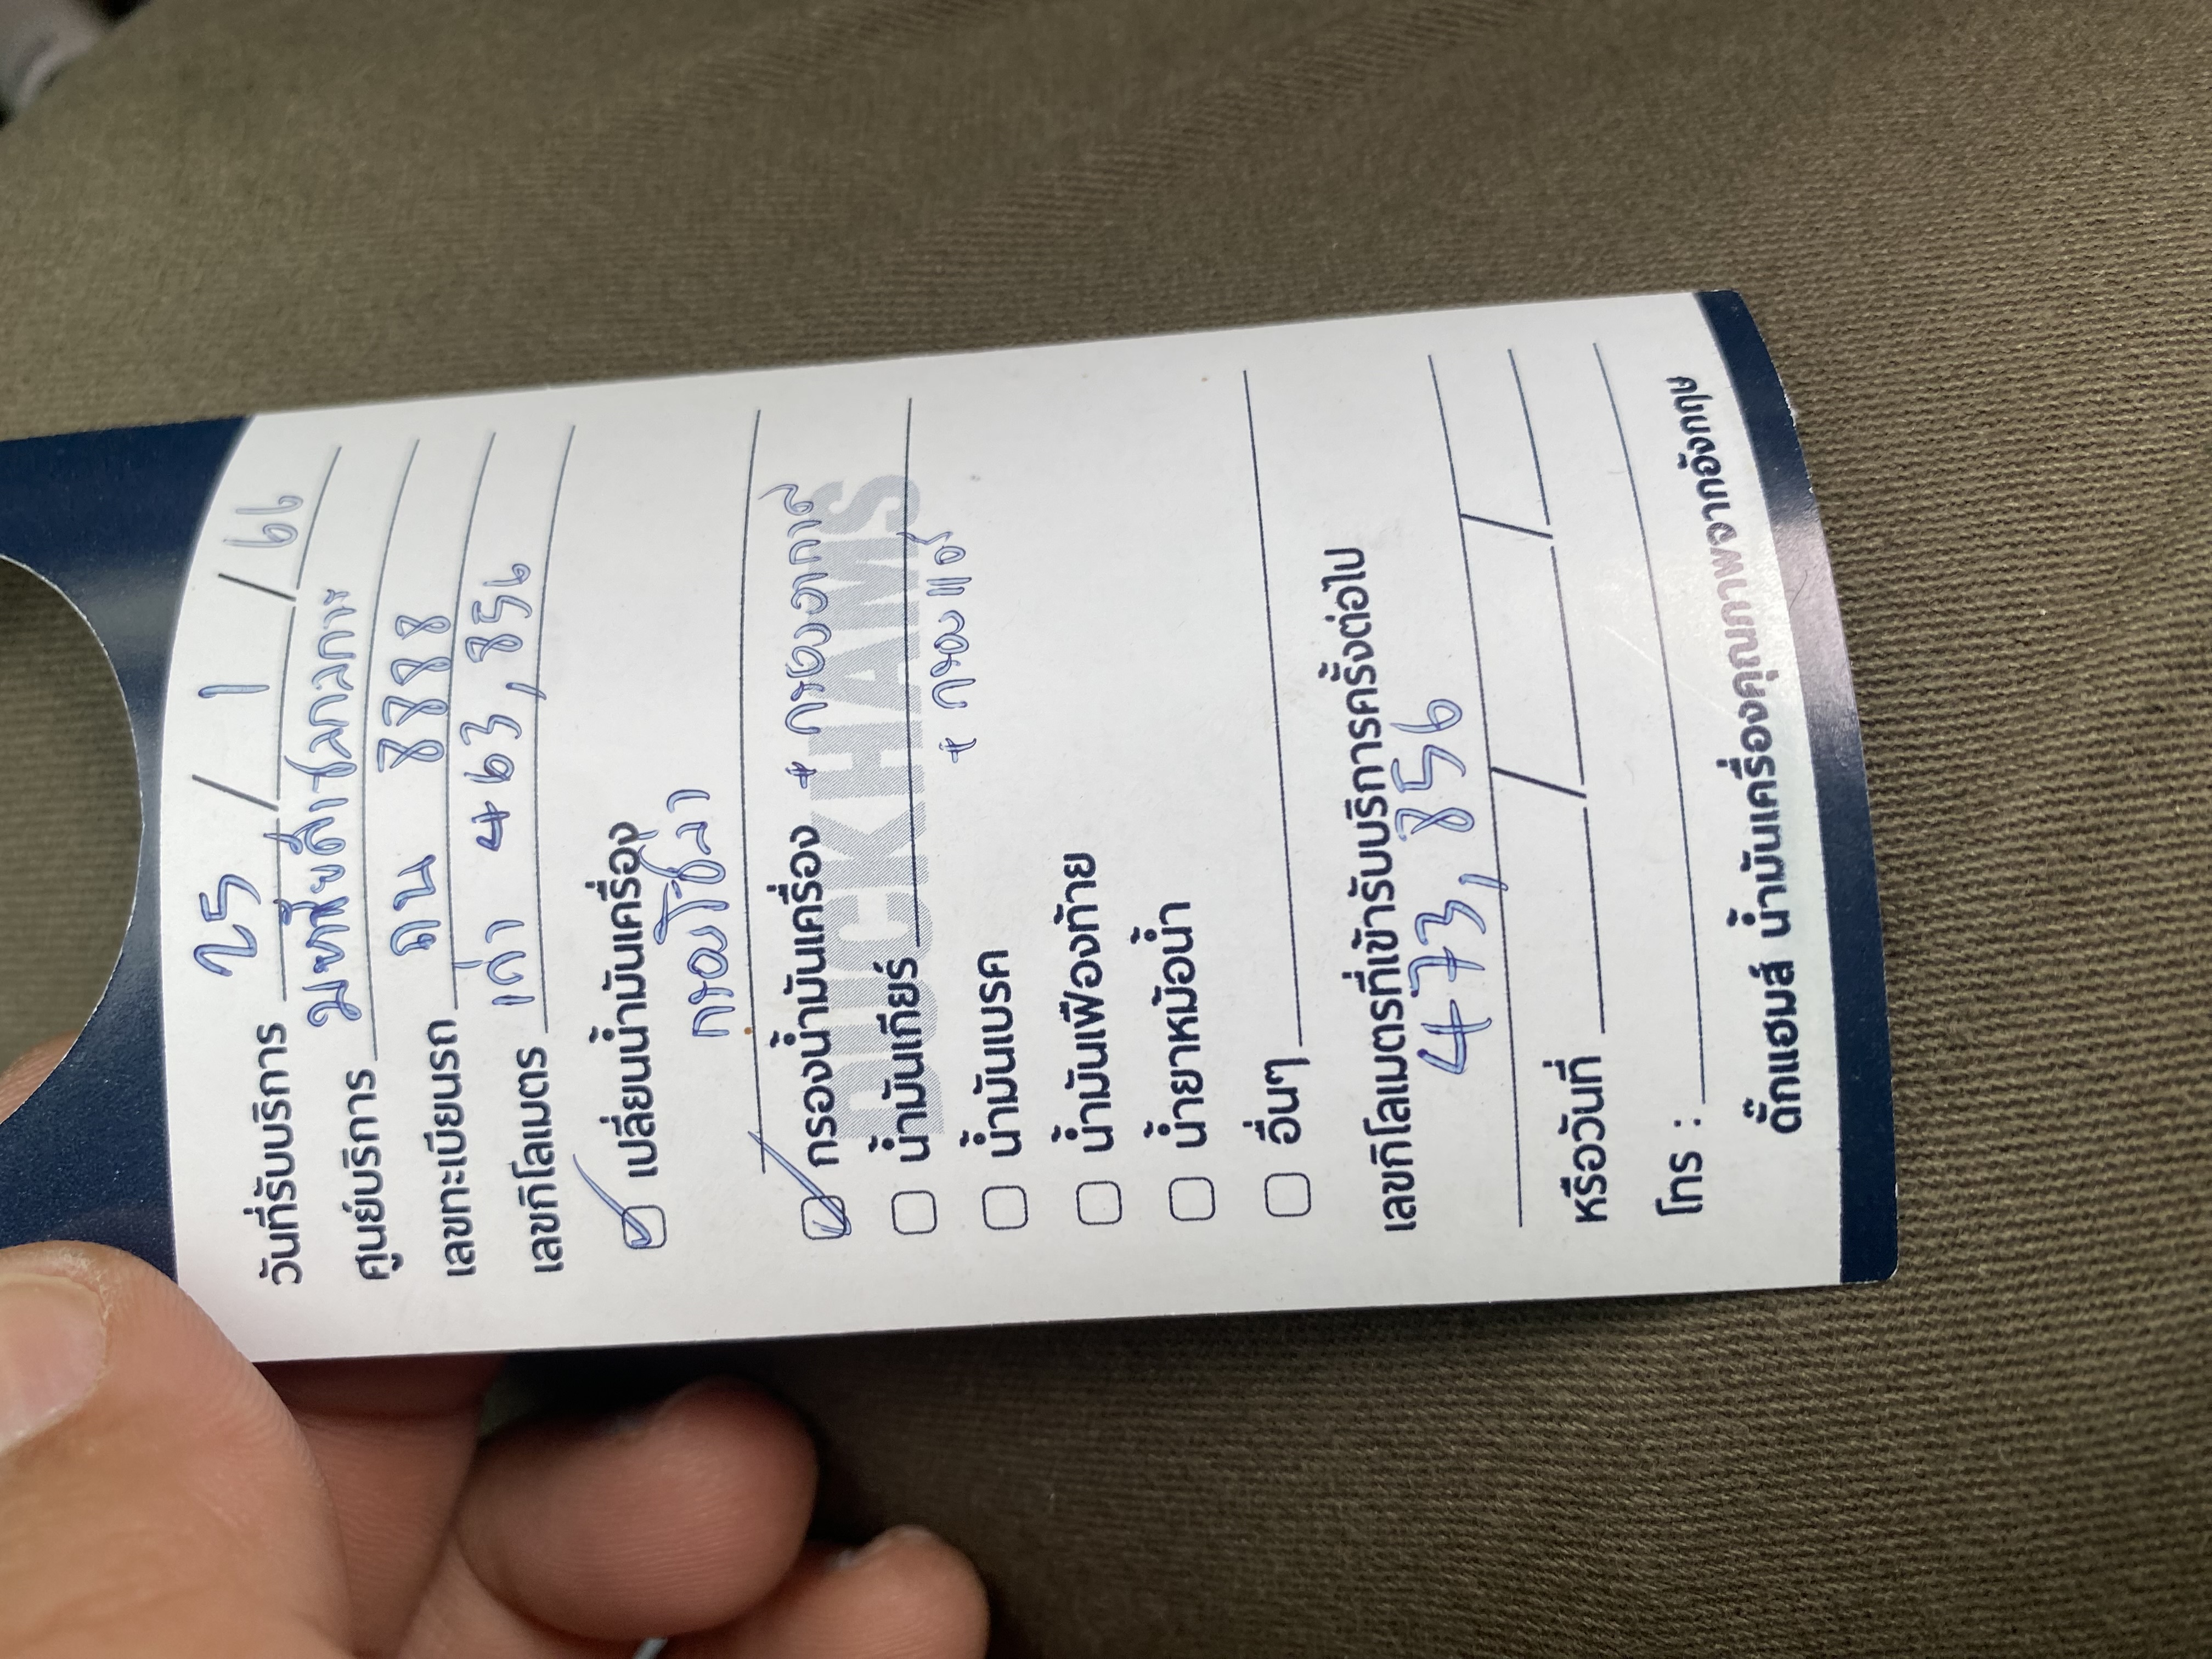 วันที่รับบริการ 25 / 1 / 66
ศูนย์บริการ มหาชัยดีเซลกลการ
เลขทะเบียนรถ ถน 8888
เลขกิโลเมตร เก่า 463,856
เปลี่ยนน้ำมันเครื่อง
กรองโซล่า
กรองน้ำมันเครื่อง + กรองอากาศ
DUCKHAMS
น้ำมันเกียร์
+ กรองแอร์
น้ำมันเบรค
น้ำมันเฟืองท้าย
น้ำยาหม้อน้ำ
อื่นๆ
เลขกิโลเมตรที่เข้ารับบริการครั้งต่อไป
473,856
หรือวันที่ / /
โทร :
ดั๊กแฮมส์ น้ำมันเครื่องคุณภาพจากอังกฤษ